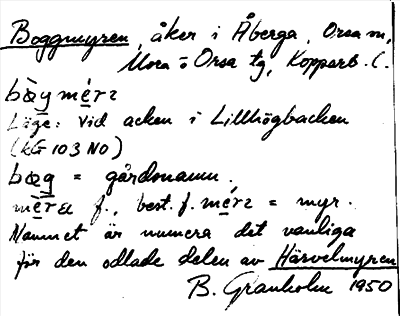 Boggmyren, åker i Åberga, Orsa sn,
Mora o Orsa tg, Kopparb. L.
bæ̀g mérɛ
Läge: vid acken i Lillhögbacken
(kG 103 NO)
bæg = gårdsnamn.
f., best. f. mérɛ = myr.
Namnet är numera det vanliga
för den odlade delen av Härvelmyren
B. Granholm 1950